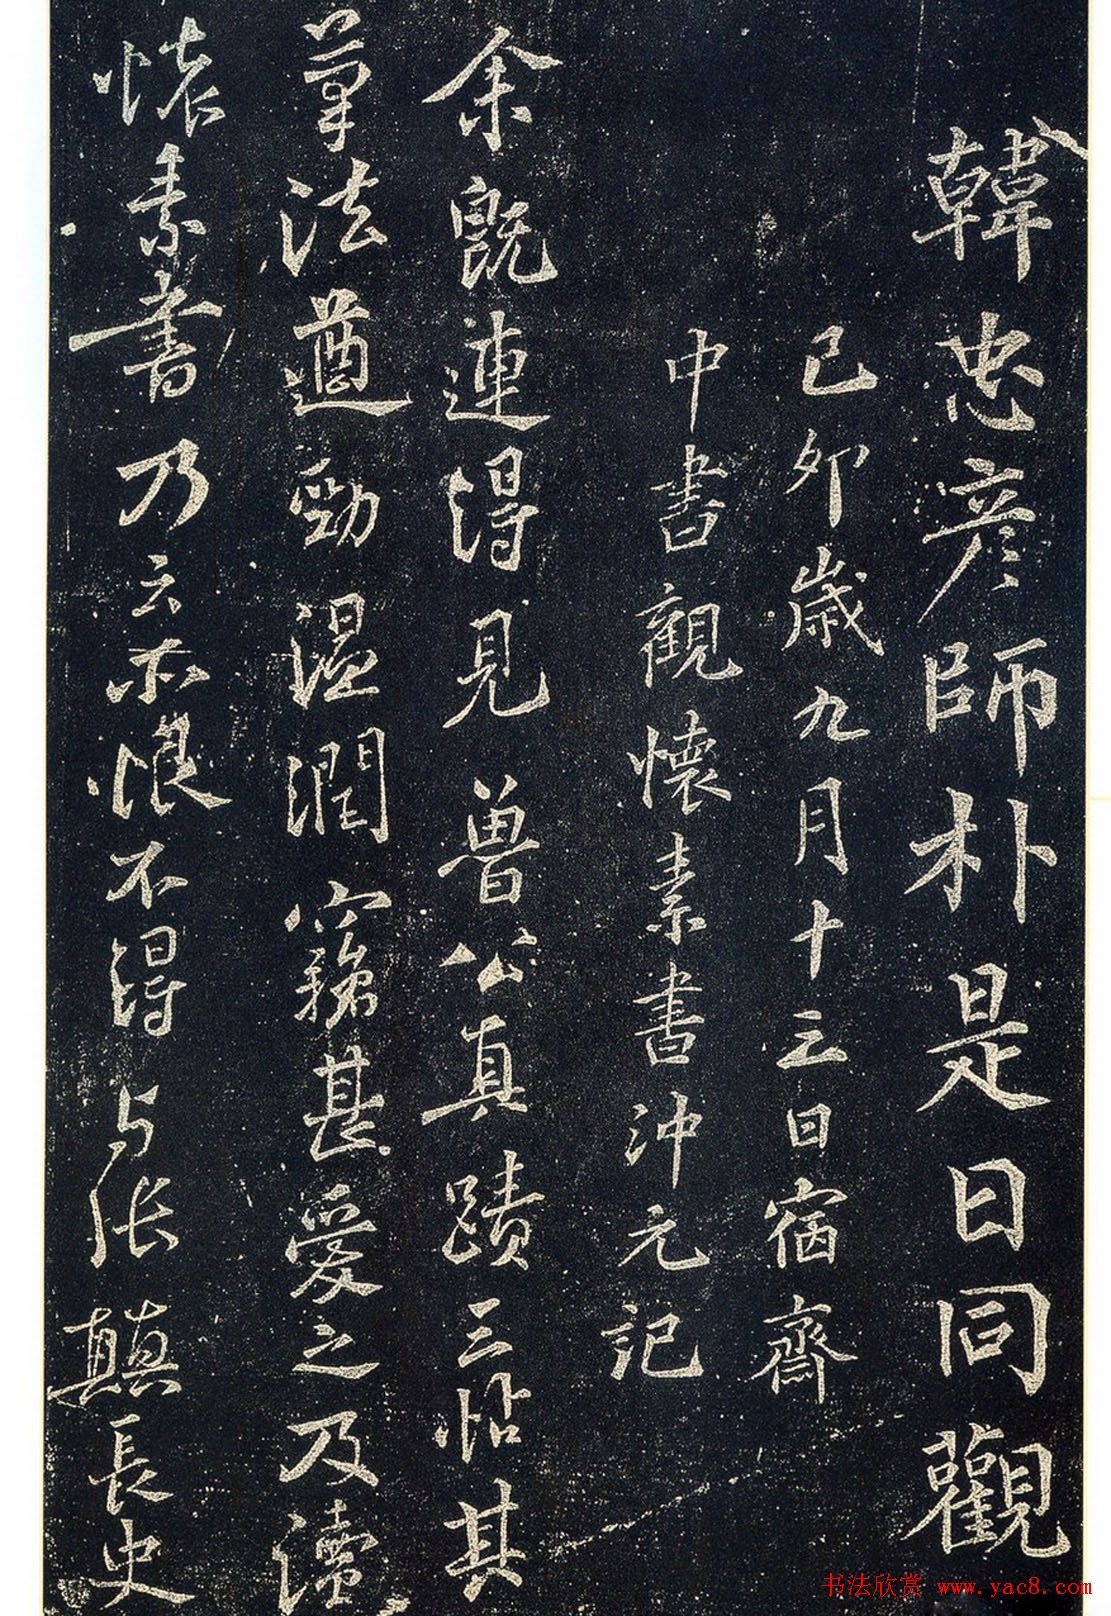 韓忠彦師朴是日同觀
己卯歲九月十三日宿齋
中書觀懷素書沖元記
余既連得見魯公真蹟三帖其
筆法遒勁溫潤竊甚愛之及讀
懷素書乃云亦恨不得与張顛長史
书法欣赏 www.yac8.com